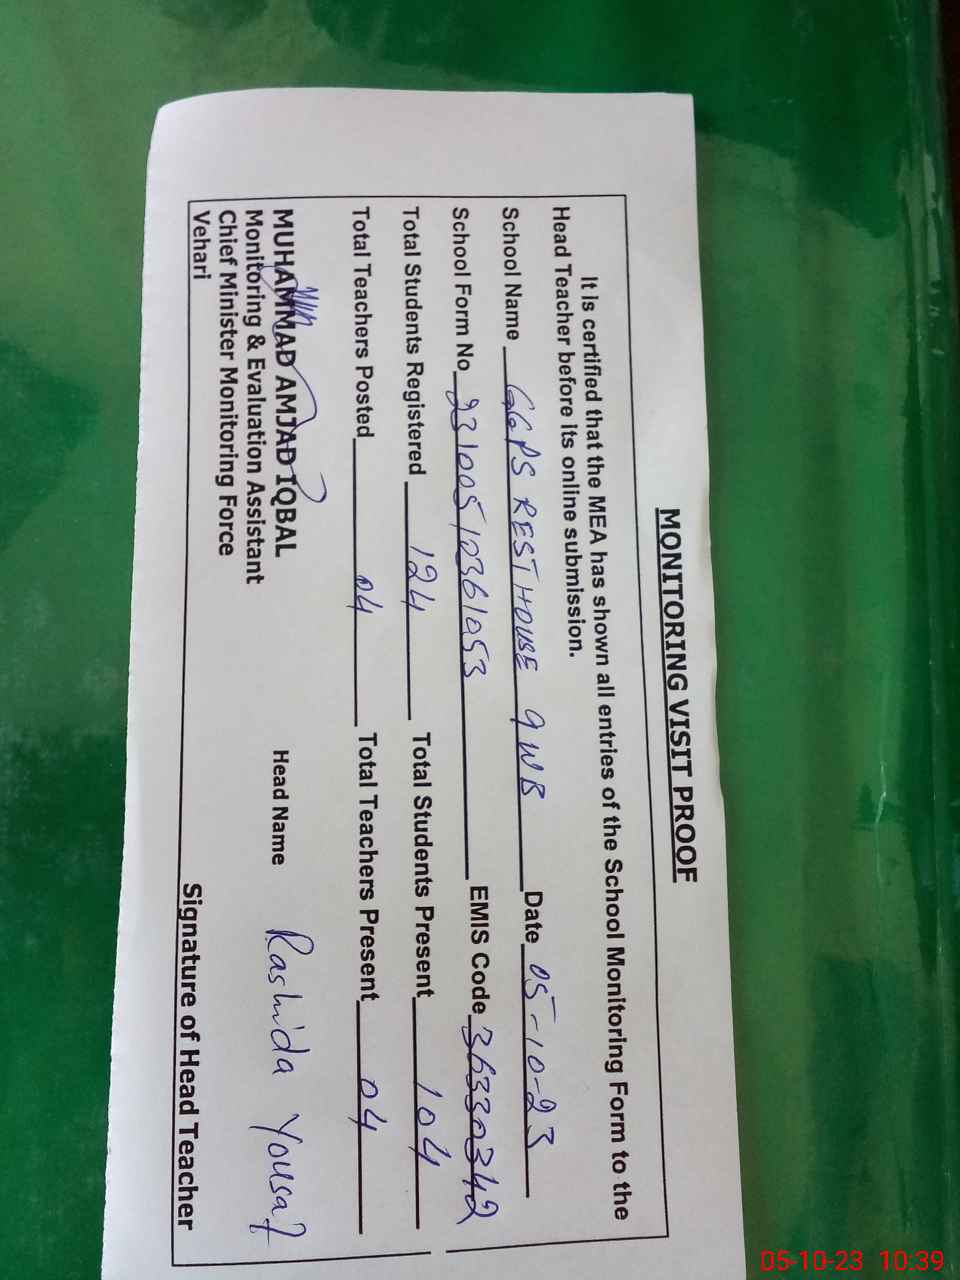 MONITORING VISIT PROOF
It is certified that the MEA has shown all entries of the School Monitoring Form to the
Head Teacher before its online submission.
School Name GGPS REST HOUSE 9 WB Date 05-10-23
School Form No 23100510361053 EMIS Code 36330342
Total Students Registered 124 Total Students Present 104
Total Teachers Posted 04 Total Teachers Present 04
MUHAMMAD AMJAD IQBAL Head Name Rashida Yousaf
Monitoring & Evaluation Assistant
Chief Minister Monitoring Force
Vehari
Signature of Head Teacher
05-10-23 10:39